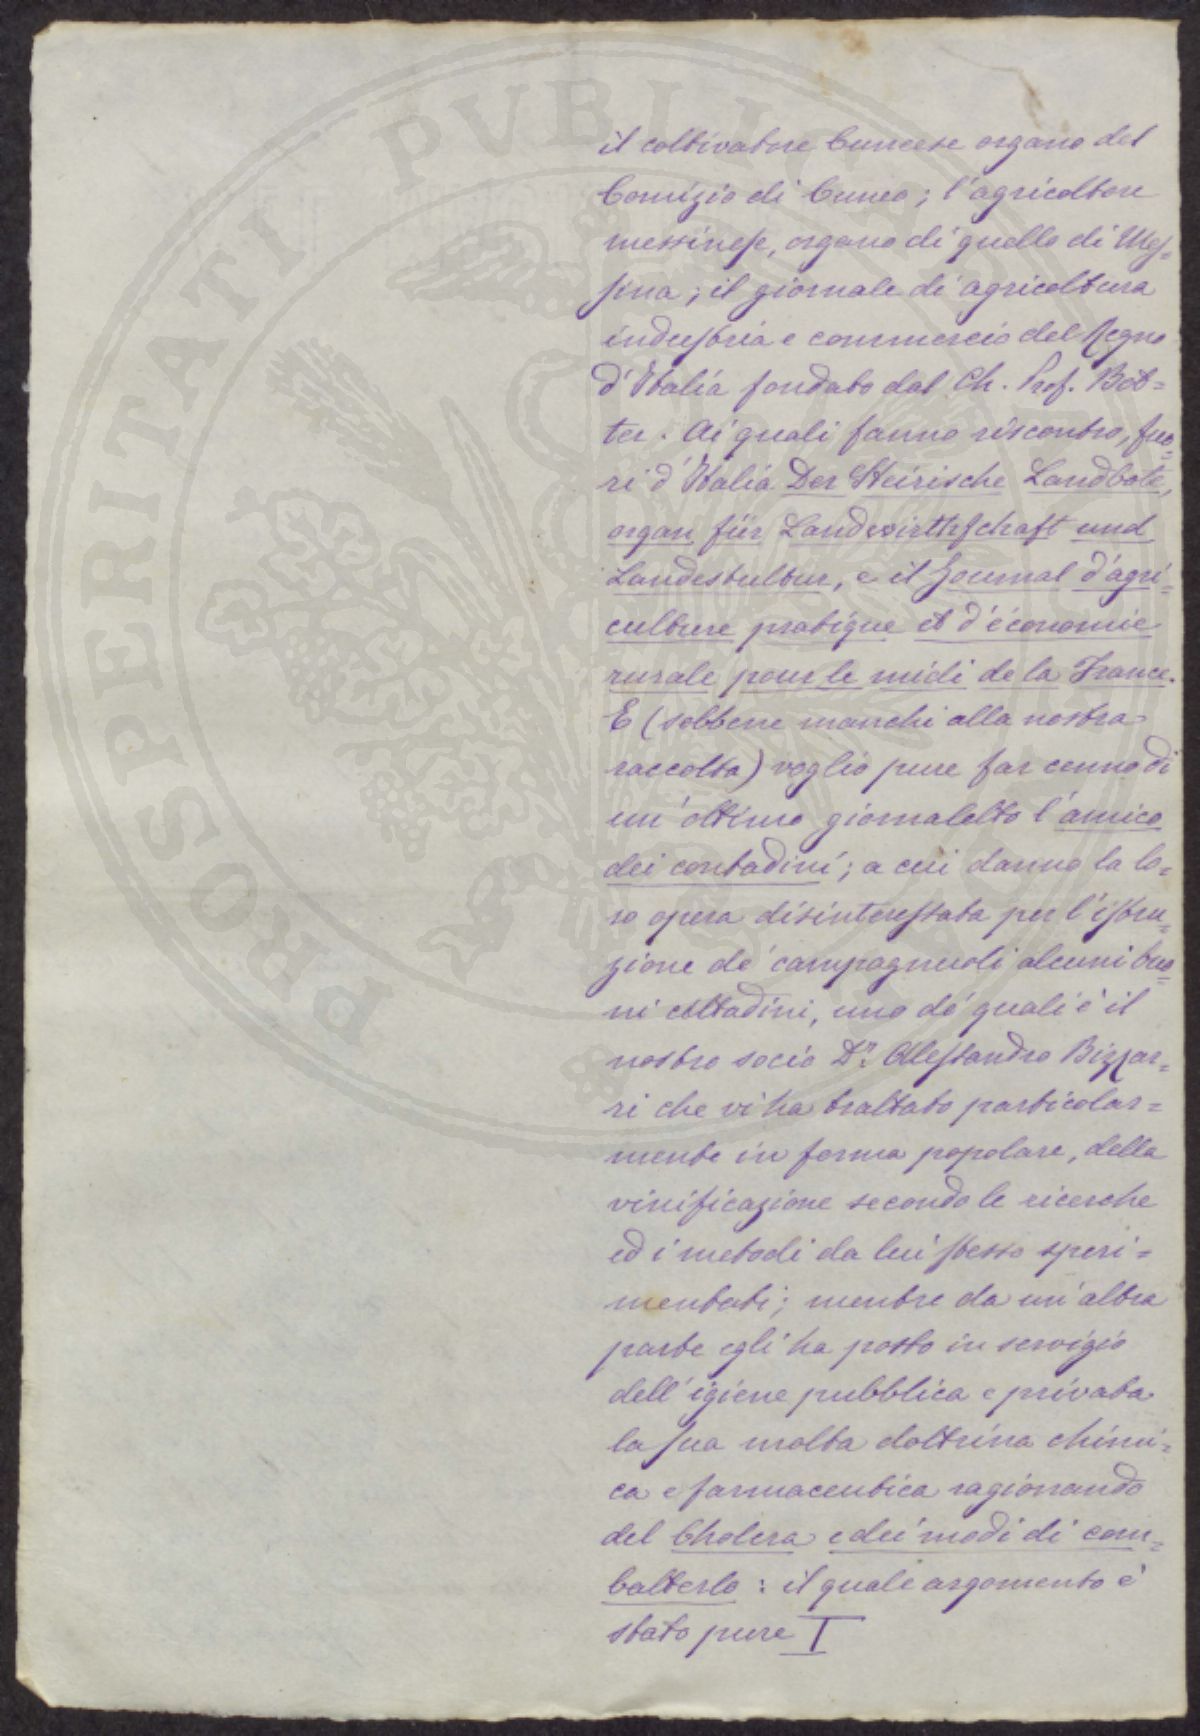 PROSPERITATI PVBLICAE AVGENDAE
il coltivatore Cuneese organo del
Comizio di Cuneo; l'agricoltore
messinese, organo di quello di Mes=
sina; il giornale di agricoltura
industria e commercio del Regno
d'Italia fondato dal Ch. Prof. Bot=
ter. Ai quali fanno riscontro, fuo=
ri d'Italia Der Steirische Landbote,
organ für Landwirthschaft und
Landeskultur, e il Journal d'agri=
culture pratique et d'économie
rurale pour le midi de la France.
E (sebbene manchi alla nostra
raccolta) voglio pure far cenno di
un'ottimo giornaletto l'amico
dei contadini; a cui danno la lo=
ro opera disinteressata per l'istru=
zione de' campagnuoli alcuni buo=
ni cittadini, uno de' quali è il
nostro socio Dr. Alessandro Bizzar=
ri che vi ha trattato particolar=
mente in forma popolare, della
vinificazione secondo le ricerche
ed i metodi da lui stesso speri=
mentati; mentre da un'altra
parte egli ha posto in servigio
dell'igiene pubblica e privata
la sua molta dottrina chimi=
ca e farmaceutica ragionando
del Cholera e dei modi di com=
batterlo: il quale argomento è
stato pure I